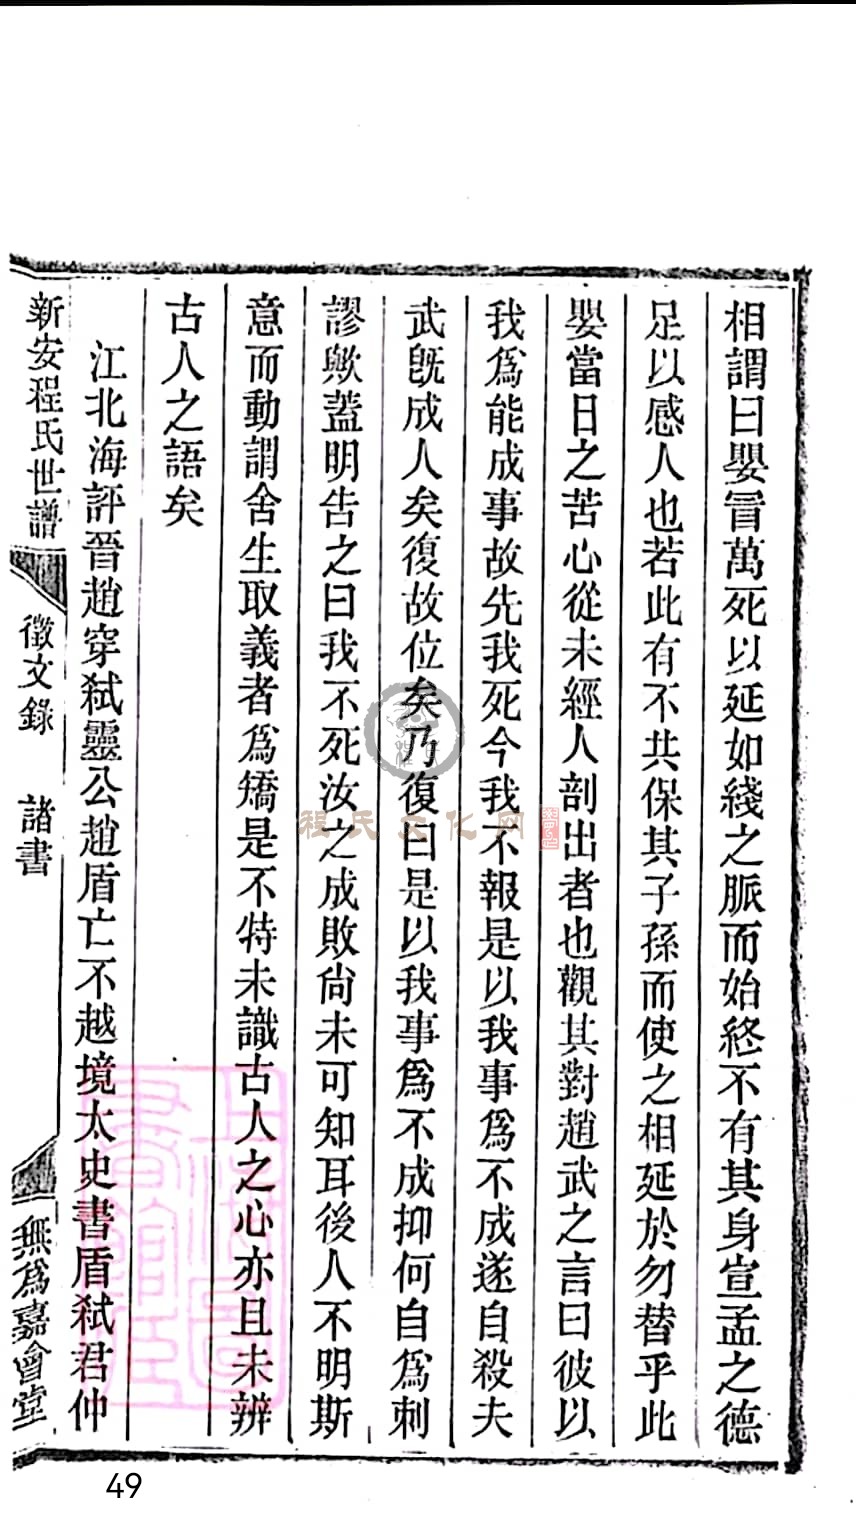 相謂曰嬰冒萬死以延如綫之脈而始終不有其身宣孟之德
足以感人也若此有不共保其子孫而使之相延於勿替乎此
嬰當日之苦心從未經人剖出者也觀其對趙武之言曰彼以
我爲能成事故先我死今我不報是以我事爲不成遂自殺夫
武旣成人矣復故位矣乃復曰是以我事爲不成抑何自爲刺
謬歟蓋明告之曰我不死汝之成敗尙未可知耳後人不明斯
意而動謂舍生取義者爲矯是不特未識古人之心亦且未辨
古人之語矣
江北海評晉趙穿弒靈公趙盾亡不越境太史書盾弒君仲
新安程氏世譜 徵文錄 諸書 無爲嘉會堂
程氏文化网
49